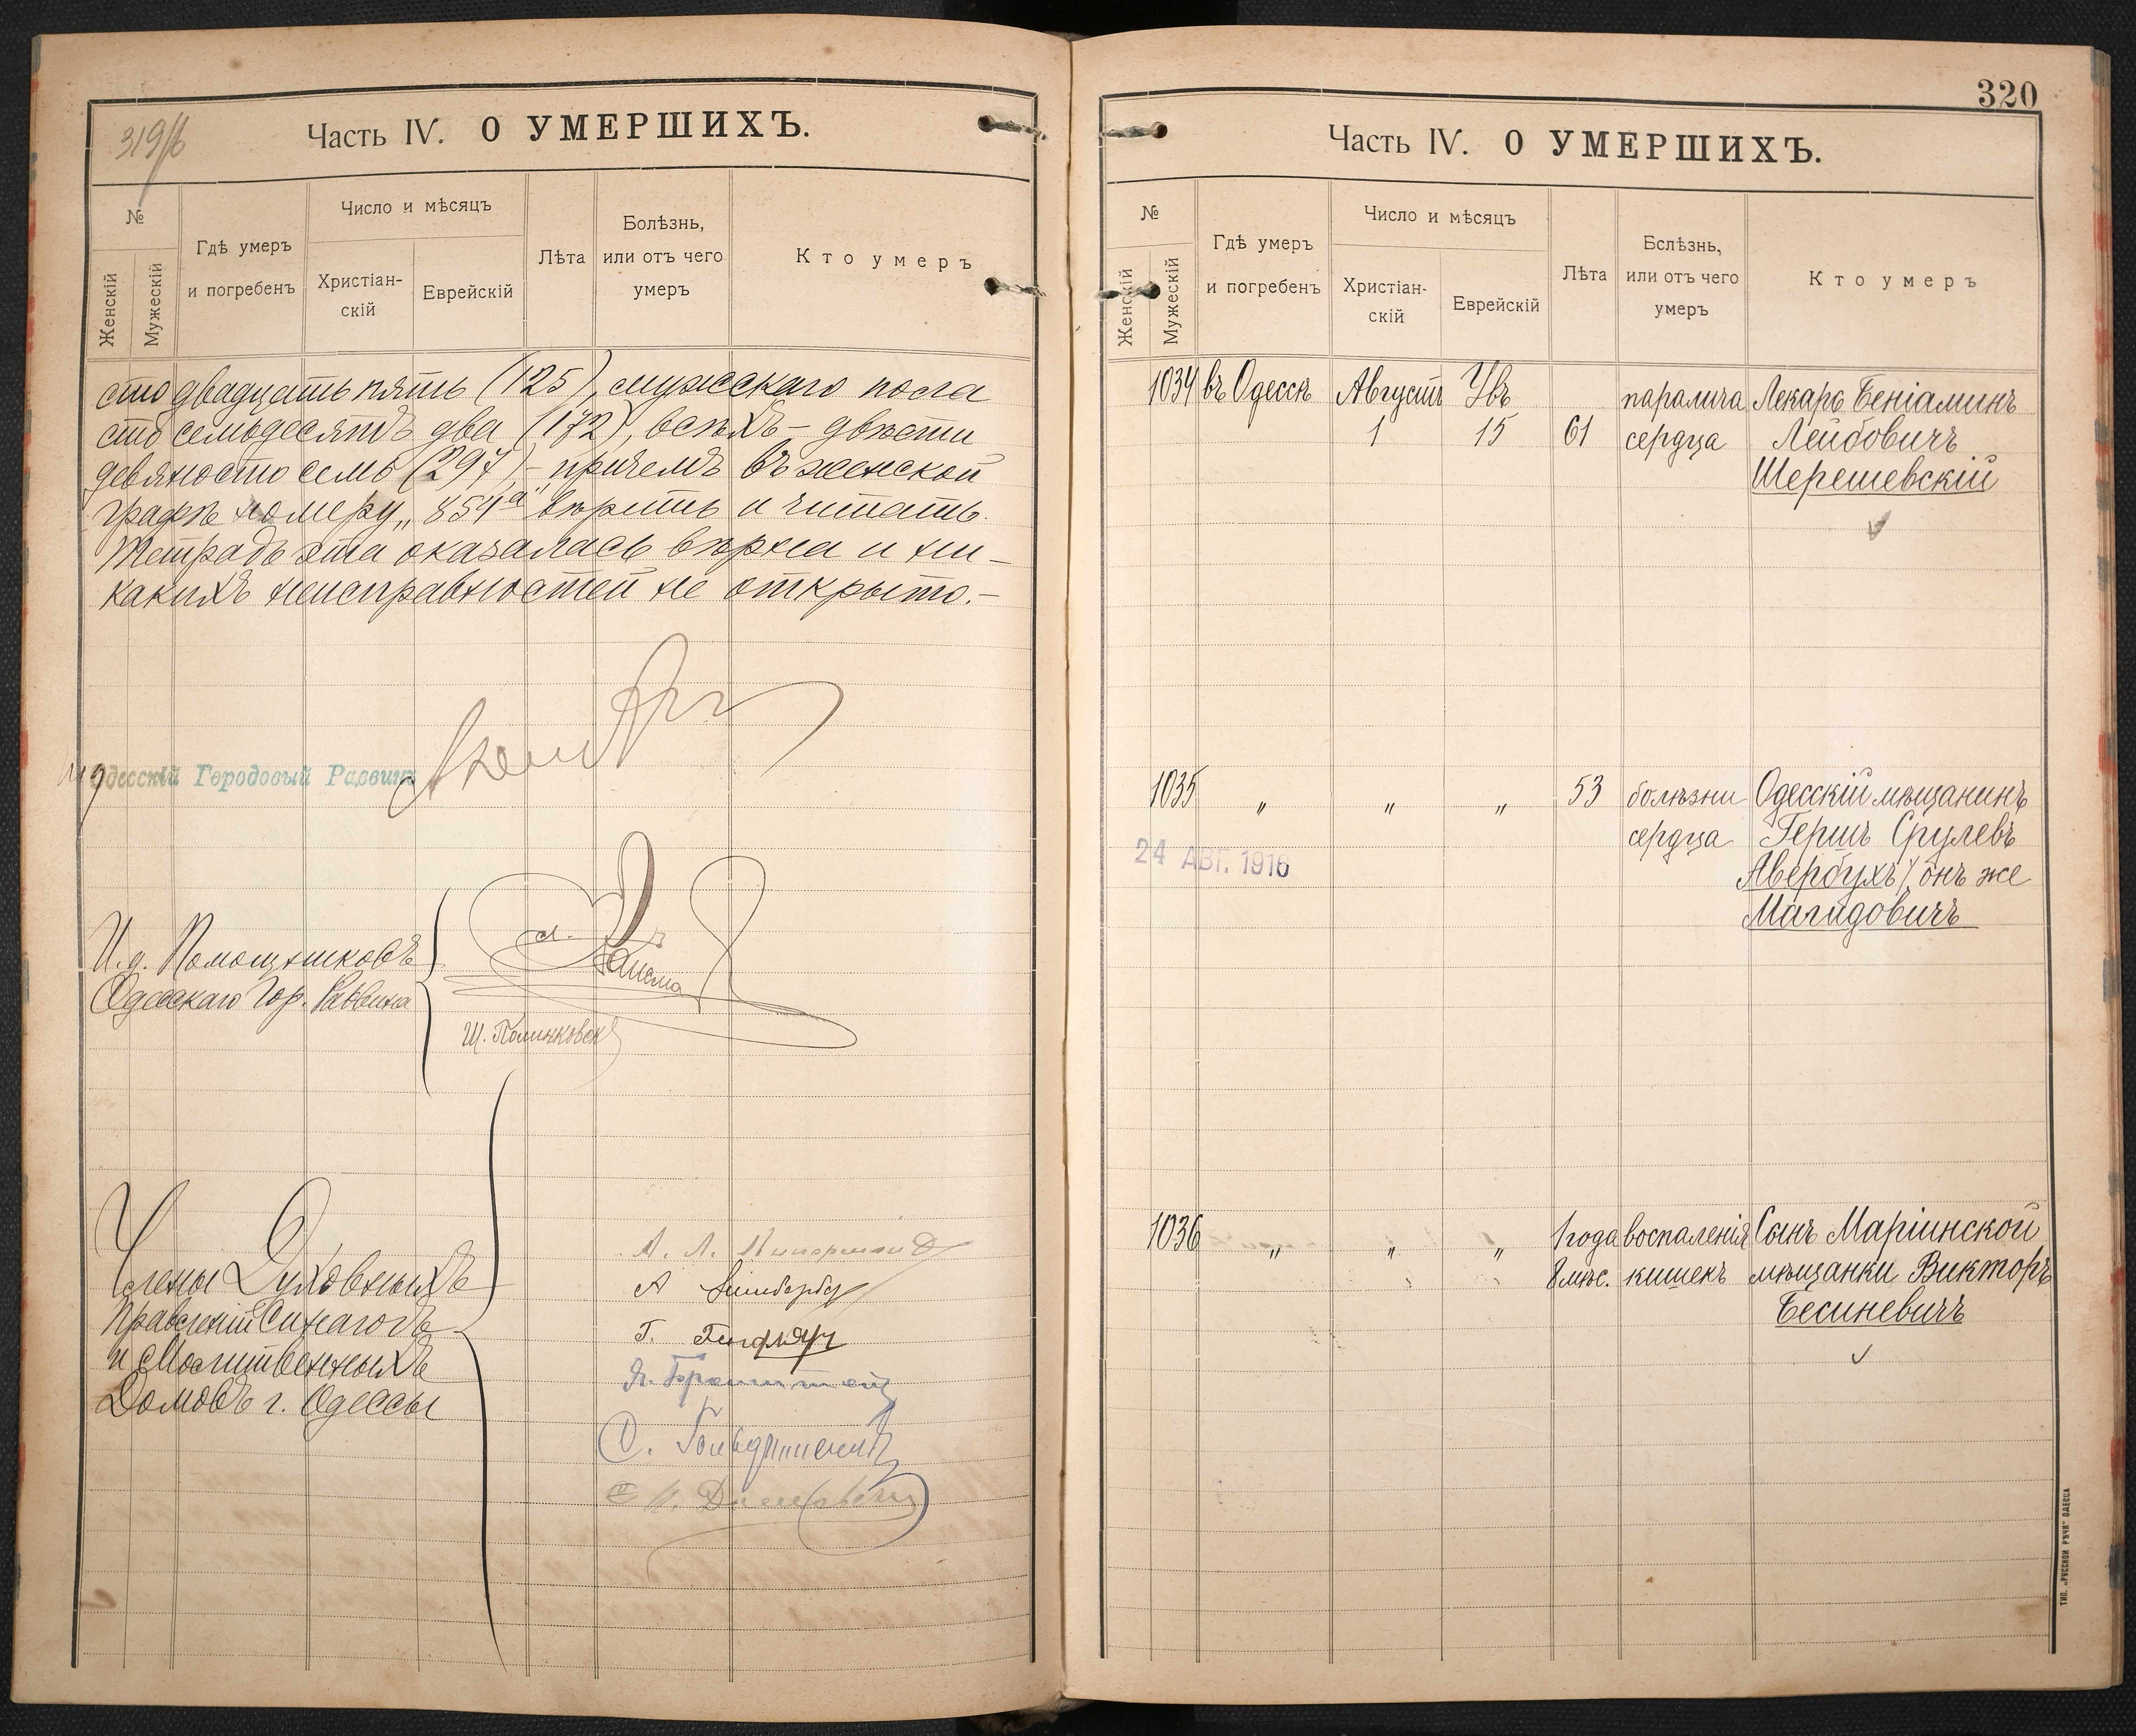 319/б
Часть IV. О УМЕРШИХЪ.
№
Женскій
Мужескій
Гдѣ умеръ
и погребенъ
Число и мѣсяцъ
Христіан-
скій
Еврейскій
Лѣта
Болѣзнь,
или отъ чего
умеръ
Кто умеръ
сто двадцать пять (125), мужескаго пола
сто семьдесятъ два (172), всѣхъ – двѣсти
девяносто семь (297), – причемъ въ женской
графѣ номеру „854а" вѣрить и читать.
Тетрадь эта оказалась вѣрна и ни-
какихъ неисправностей не открыто. –
Одесскій Городовый Раввинъ
И.д. Помощниковъ
Одесскаго Гор. Раввина
Члены Духовныхъ
Правленій Синагогъ
и Молитвенныхъ
Домовъ г. Одессы
320
Часть IV. О УМЕРШИХЪ.
№
Женскій
Мужескій
Гдѣ умеръ
и погребенъ
Число и мѣсяцъ
Христіан-
скій
Еврейскій
Лѣта
Болѣзнь,
или отъ чего
умеръ
Кто умеръ
1034 въ Одессѣ Августъ Увъ паралича Лекарь Беніаминъ
1 15 61 сердца Лейбовичъ
Шерешевскій
1035 „ „ „ 53 болѣзни Одесскій мѣщанинъ
сердца Гершъ Срулевъ
24 АВГ. 1916
Авербухъ, онъ же
Магидовичъ
1036 „ „ „ 1 года воспаленія Сынъ Маріинской
8 мѣс. кишекъ мѣщанки Викторъ
Бесиневичъ
ТИП. „РУССКОЙ РѢЧИ" ОДЕССА